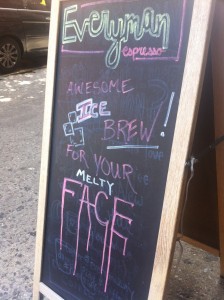 Everyman
espresso
AWESOME
ICE
BREW!
FOR YOUR
MELTY
FACE